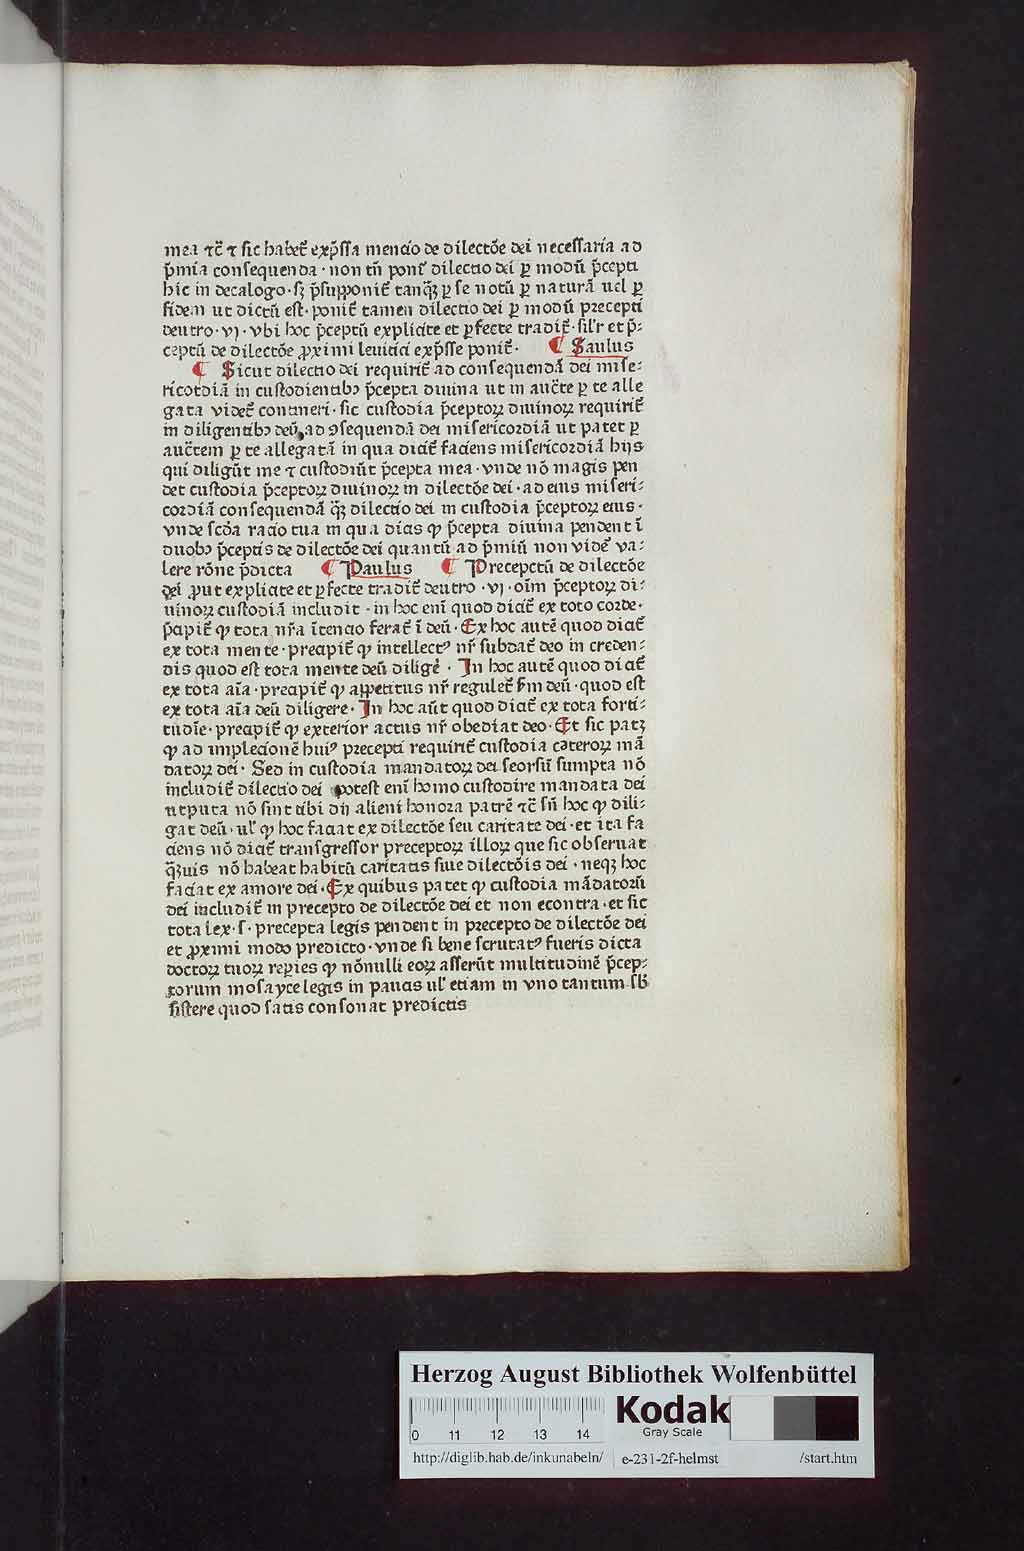 mea ⁊c̄ ⁊ sic habet᷑ exp̄ssa mencio de dilectōe dei necessaria ad
p̄mia consequenda · non tn̄ ponit᷑ dilectio dei ꝑ modū p̄cepti
hic in decalogo · sꝫ p̄supponit᷑ tanqꝫ̄ ꝑ se notū ꝑ naturā uel ꝑ
fidem ut dictū est · ponit᷑ tamen dilectio dei ꝑ modū precepti
deutro · vj · vbi hoc p̄ceptū explicite et ꝑfecte tradit᷑ · sil'r et p̄-
ceptū de dilectōe ꝓximi leuitici exp̄sse ponit᷑ · ¶ Saulus
¶ Sicut dilectio dei requirit᷑ ad consequendā dei mise-
ricordiā in custodientibꝰ p̄cepta diuina ut in auc̄te ꝑ te alle
gata videt᷑ contineri · sic custodia p̄ceptoꝝ diuinoꝝ requirit᷑
in diligentibꝰ deū, ad ꝯsequendā dei misericordiā ut patet ꝑ
auc̄tem ꝑ te allegatā in qua dicit᷑ faciens misericordiā hijs
qui diligūt me ⁊ custodiūt p̄cepta mea · vnde nō magis pen
det custodia p̄ceptoꝝ diuinoꝝ in dilectōe dei · ad eius miseri-
cordiā consequendā qꝫ̄ dilectio dei in custodia p̄ceptoꝝ eius ·
vnde scd̄a racio tua in qua dicis ꝙ p̄cepta diuina pendent ī
duobꝰ p̄ceptis de dilectōe dei quantū ad p̄miū non videt᷑ va-
lere rōne p̄dicta ¶ Paulus ¶ Precepctū de dilectōe
dei ꝓut explicite et ꝑfecte tradit᷑ deutro · vj · oīm p̄ceptoꝝ di-
uinoꝝ custodiā includit · in hoc enī quod dicit᷑ ex toto corde ·
p̄cipit᷑ ꝙ tota nr̄a ītencio ferat᷑ ī deū · Ex hoc autē quod dicit᷑
ex tota mente · precipit᷑ ꝙ intellectꝰ nr̄ subdat᷑ deo in creden-
dis quod est tota mente deū diliger̄ · In hoc autē quod dicit᷑
ex tota aīa · precipit᷑ ꝙ appetitus nr̄ regulet᷑ ẜm deū · quod est
ex tota aīa deū diligere · In hoc aūt quod dicit᷑ ex tota forti-
tudīe · precipit᷑ ꝙ exterior actus nr̄ obediat deo · Et sic patꝫ
ꝙ ad implecionē huiꝰ precepti requirit᷑ custodia ceteroꝝ mā
datoꝝ dei · Sed in custodia mandatoꝝ dei seorsū sumpta nō
includit᷑ dilectio dei potest enī homo custodire mandata dei
utputa nō sint tibi dij alieni honora patrē ⁊c̄ sn̄ hoc ꝙ dili-
gat deū · ul' ꝙ hoc faciat ex dilectōe seu caritate dei · et ita fa
ciens nō dicit᷑ transgressor preceptoꝝ illoꝝ que sic obseruat
qꝫ̄uis nō habeat habitū caritatis siue dilectōis dei · neqꝫ hoc
faciat ex amore dei · Ex quibus patet ꝙ custodia mādatorū
dei includit᷑ in precepto de dilectōe dei et non econtra · et sic
tota lex · s · precepta legis pendent in precepto de dilectōe dei
et ꝓximi modo predicto · vnde si bene scrutatꝰ fueris dicta
doctoꝝ tuoꝝ reꝑies ꝙ nōnulli eoꝝ asserūt multitudinē p̄cep-
torum mosayce legis in paucis ul' etiam in vno tantum sb̄
sistere quod satis consonat predictis
Herzog August Bibliothek Wolfenbüttel
0 11 12 13 14
Kodak
Gray Scale
http://diglib.hab.de/inkunabeln/ e-231-2f-helmst /start.htm